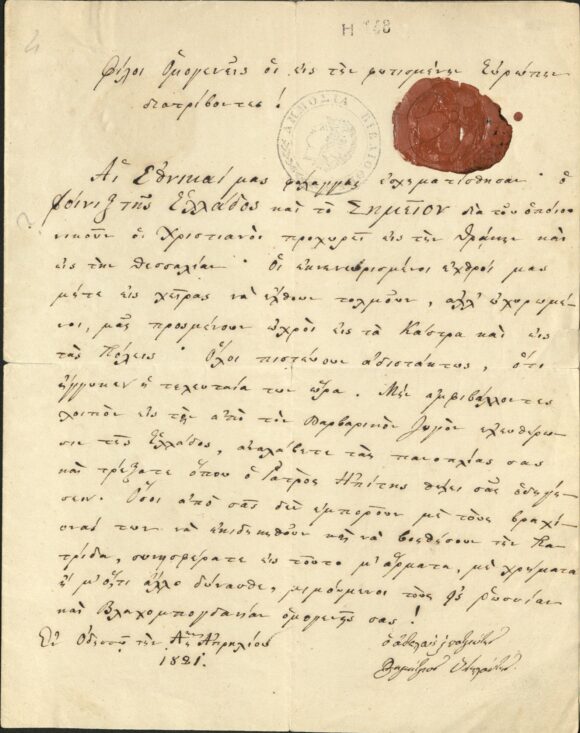 Η 148
Φίλοι Ὁμογενεῖς οἱ εἰς τὴν φωτισμένην Εὐρώπην
διατρίβοντες!
ΔΗΜΟΣΙΑ
Αἱ Ἐθνικαί μας φάλαγγες ἐσχηματίσθησαν · ὁ
φοίνιξ τῆς Ἑλλάδος καὶ τὸ Σημεῖον διὰ τοῦ ὁποίου
νικοῦν οἱ Χριστιανοὶ προχωρεῖ εἰς τὴν Θράκην καὶ
εἰς τὴν Θεσσαλίαν · Οἱ ἐκνενευρισμένοι ἐχθροί μας
μήτε εἰς χεῖρας νὰ ἔλθουν τολμοῦν, ἀλλ' ὀχυρωμέ
νοι, μᾶς προσμένουν ὠχροὶ εἰς τὰ Κάστρα καὶ εἰς
τὰς Πόλεις · Ὅλοι πιστεύουν ἀδιστάκτως, ὅτι
ἔφθασεν ἡ τελευταία των ὥρα. Μὴν ἀμφιβάλλοντες
λοιπὸν εἰς τὴν ἀπὸ τὸν Βαρβαρικὸν ζυγὸν ἐλευθέρω
σιν τῆς Ἑλλάδος, ἀναλάβετε τὰς πανοπλίας σας
καὶ τρέξατε ὅπου ὁ Ἰατρὸς Ἠπίτης θέλει σᾶς ὁδηγή
σειν. Ὅσοι ἀπὸ σᾶς δὲν ἐμποροῦν μὲ τοὺς βραχί
ονάς των νὰ καὶ νὰ βοηθήσουν τὴν Πα
τρίδα, συνεισφέρατε εἰς τοῦτο μ' ἄρματα, μὲ χρήματα
ἢ μ' ὅ,τι ἄλλο δύνασθε, μιμούμενοι τοὺς Ῥωσσίαν
καὶ Βλαχομπογδανίαν ὁμογενεῖς σας!
Ἐν Ὀδησσῷ τὴν Αην Ἀπρηλίου
1821.